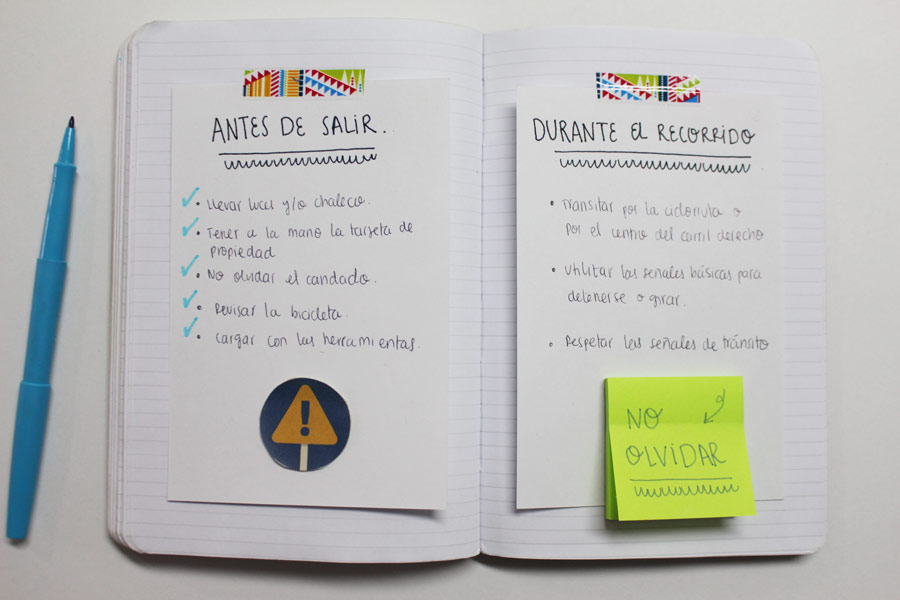 ANTES DE SALIR.
• Llevar luces y/o chaleco.
• Tener a la mano la tarjeta de
propiedad
• No olvidar el candado.
• Revisar la bicicleta.
• Cargar con las herramientas.
!
DURANTE EL RECORRIDO
• Transitar por la cicloruta o
por el centro del carril derecho
• Utilizar las señales básicas para
detenerse o girar.
• Respetar las señales de tránsito
NO
OLVIDAR